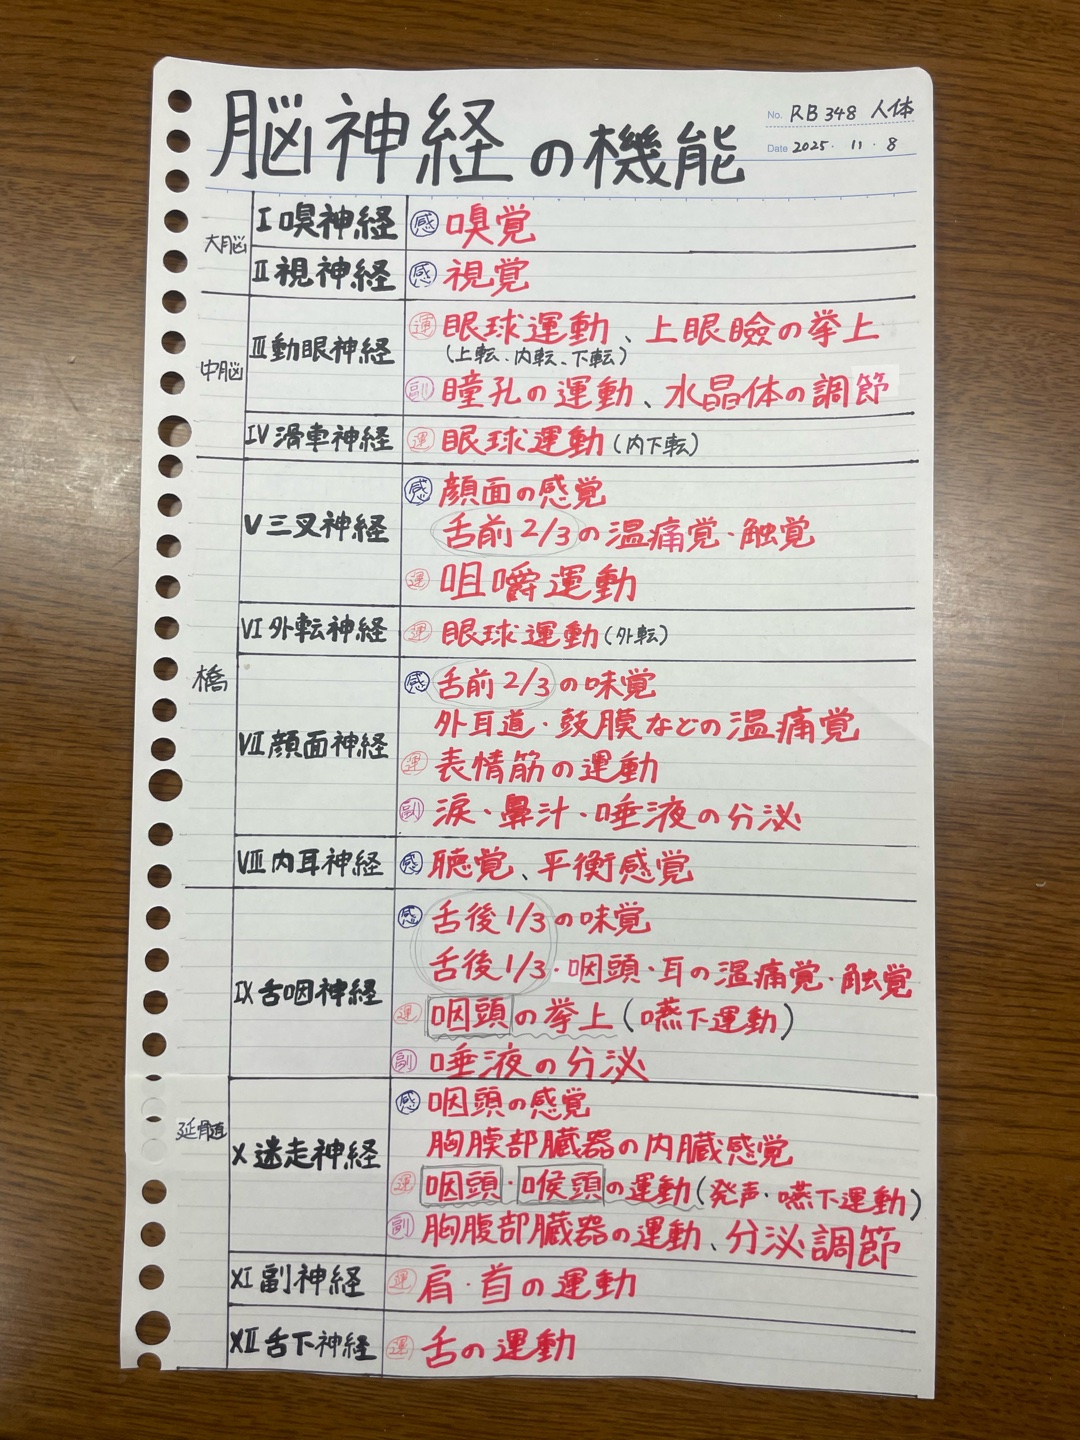 脳神経の機能
No. RB 348 人体
Date 2025・11・8
大脳
I 嗅神経 感 嗅覚
II 視神経 感 視覚
中脳
III 動眼神経 運 眼球運動、上眼瞼の挙上
(上転、内転、下転)
副 瞳孔の運動、水晶体の調節
IV 滑車神経 運 眼球運動(内下転)
橋
V 三叉神経 感 顔面の感覚
舌前2/3の温痛覚・触覚
運 咀嚼運動
VI 外転神経 運 眼球運動(外転)
VII 顔面神経 感 舌前2/3の味覚
外耳道・鼓膜などの温痛覚
運 表情筋の運動
副 涙・鼻汁・唾液の分泌
VIII 内耳神経 感 聴覚、平衡感覚
延髄
IX 舌咽神経 感 舌後1/3の味覚
舌後1/3・咽頭・耳の温痛覚・触覚
運 咽頭の挙上(嚥下運動)
副 唾液の分泌
X 迷走神経 感 咽頭の感覚
胸腹部臓器の内臓感覚
運 咽頭・喉頭の運動(発声・嚥下運動)
副 胸腹部臓器の運動、分泌調節
XI 副神経 運 肩・首の運動
XII 舌下神経 運 舌の運動